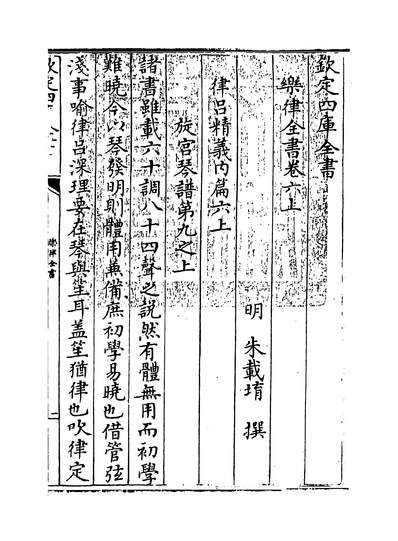 欽定四庫全書
樂律全書卷六上
明 朱載堉 撰
律呂精義內篇六上
旋宮琴譜第九之上
諸書雖載六十調八十四聲之說然有體無用而初學
難曉今以琴發明則體用兼備庶初學易曉也借管弦
淺事喻律呂深理要在琴與笙耳蓋笙猶律也吹律定
欽定四
樂律全書
一